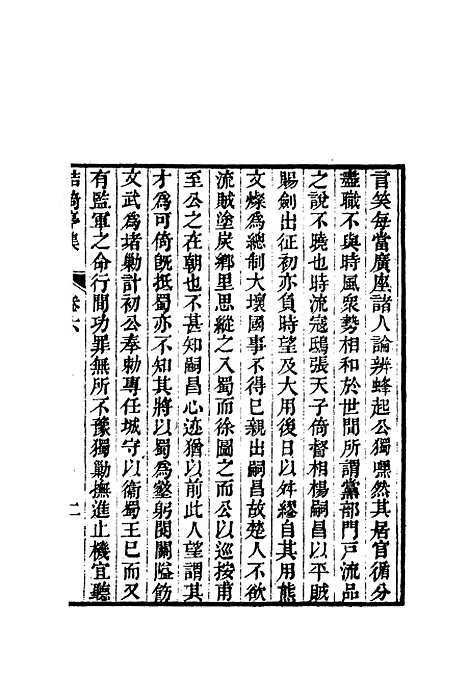 言笑每當廣座諸人論辨蜂起公獨嘿然其居官循分
盡職不與時風衆勢相和於世間所謂黨部門戸流品
之說不曉也時流寇鴟張天子倚督相楊嗣昌以平賊
賜劍出征初亦負時望及大用後日以舛繆自其用熊
文燦為總制大壞國事不得已親出嗣昌故楚人不欲
流賊塗炭鄉里思縱之入蜀而徐圖之而公以巡按甫
至公之在朝也不甚知嗣昌心迹猶以前此人望謂其
才為可倚旣抵蜀亦不知其將以蜀為壑躬閱關隘飭
文武為堵勦計初公奉勅專任城守以衛蜀王已而又
有監軍之命行間功罪無所不豫獨勦撫進止機宜聽
結埼亭集
卷六
二